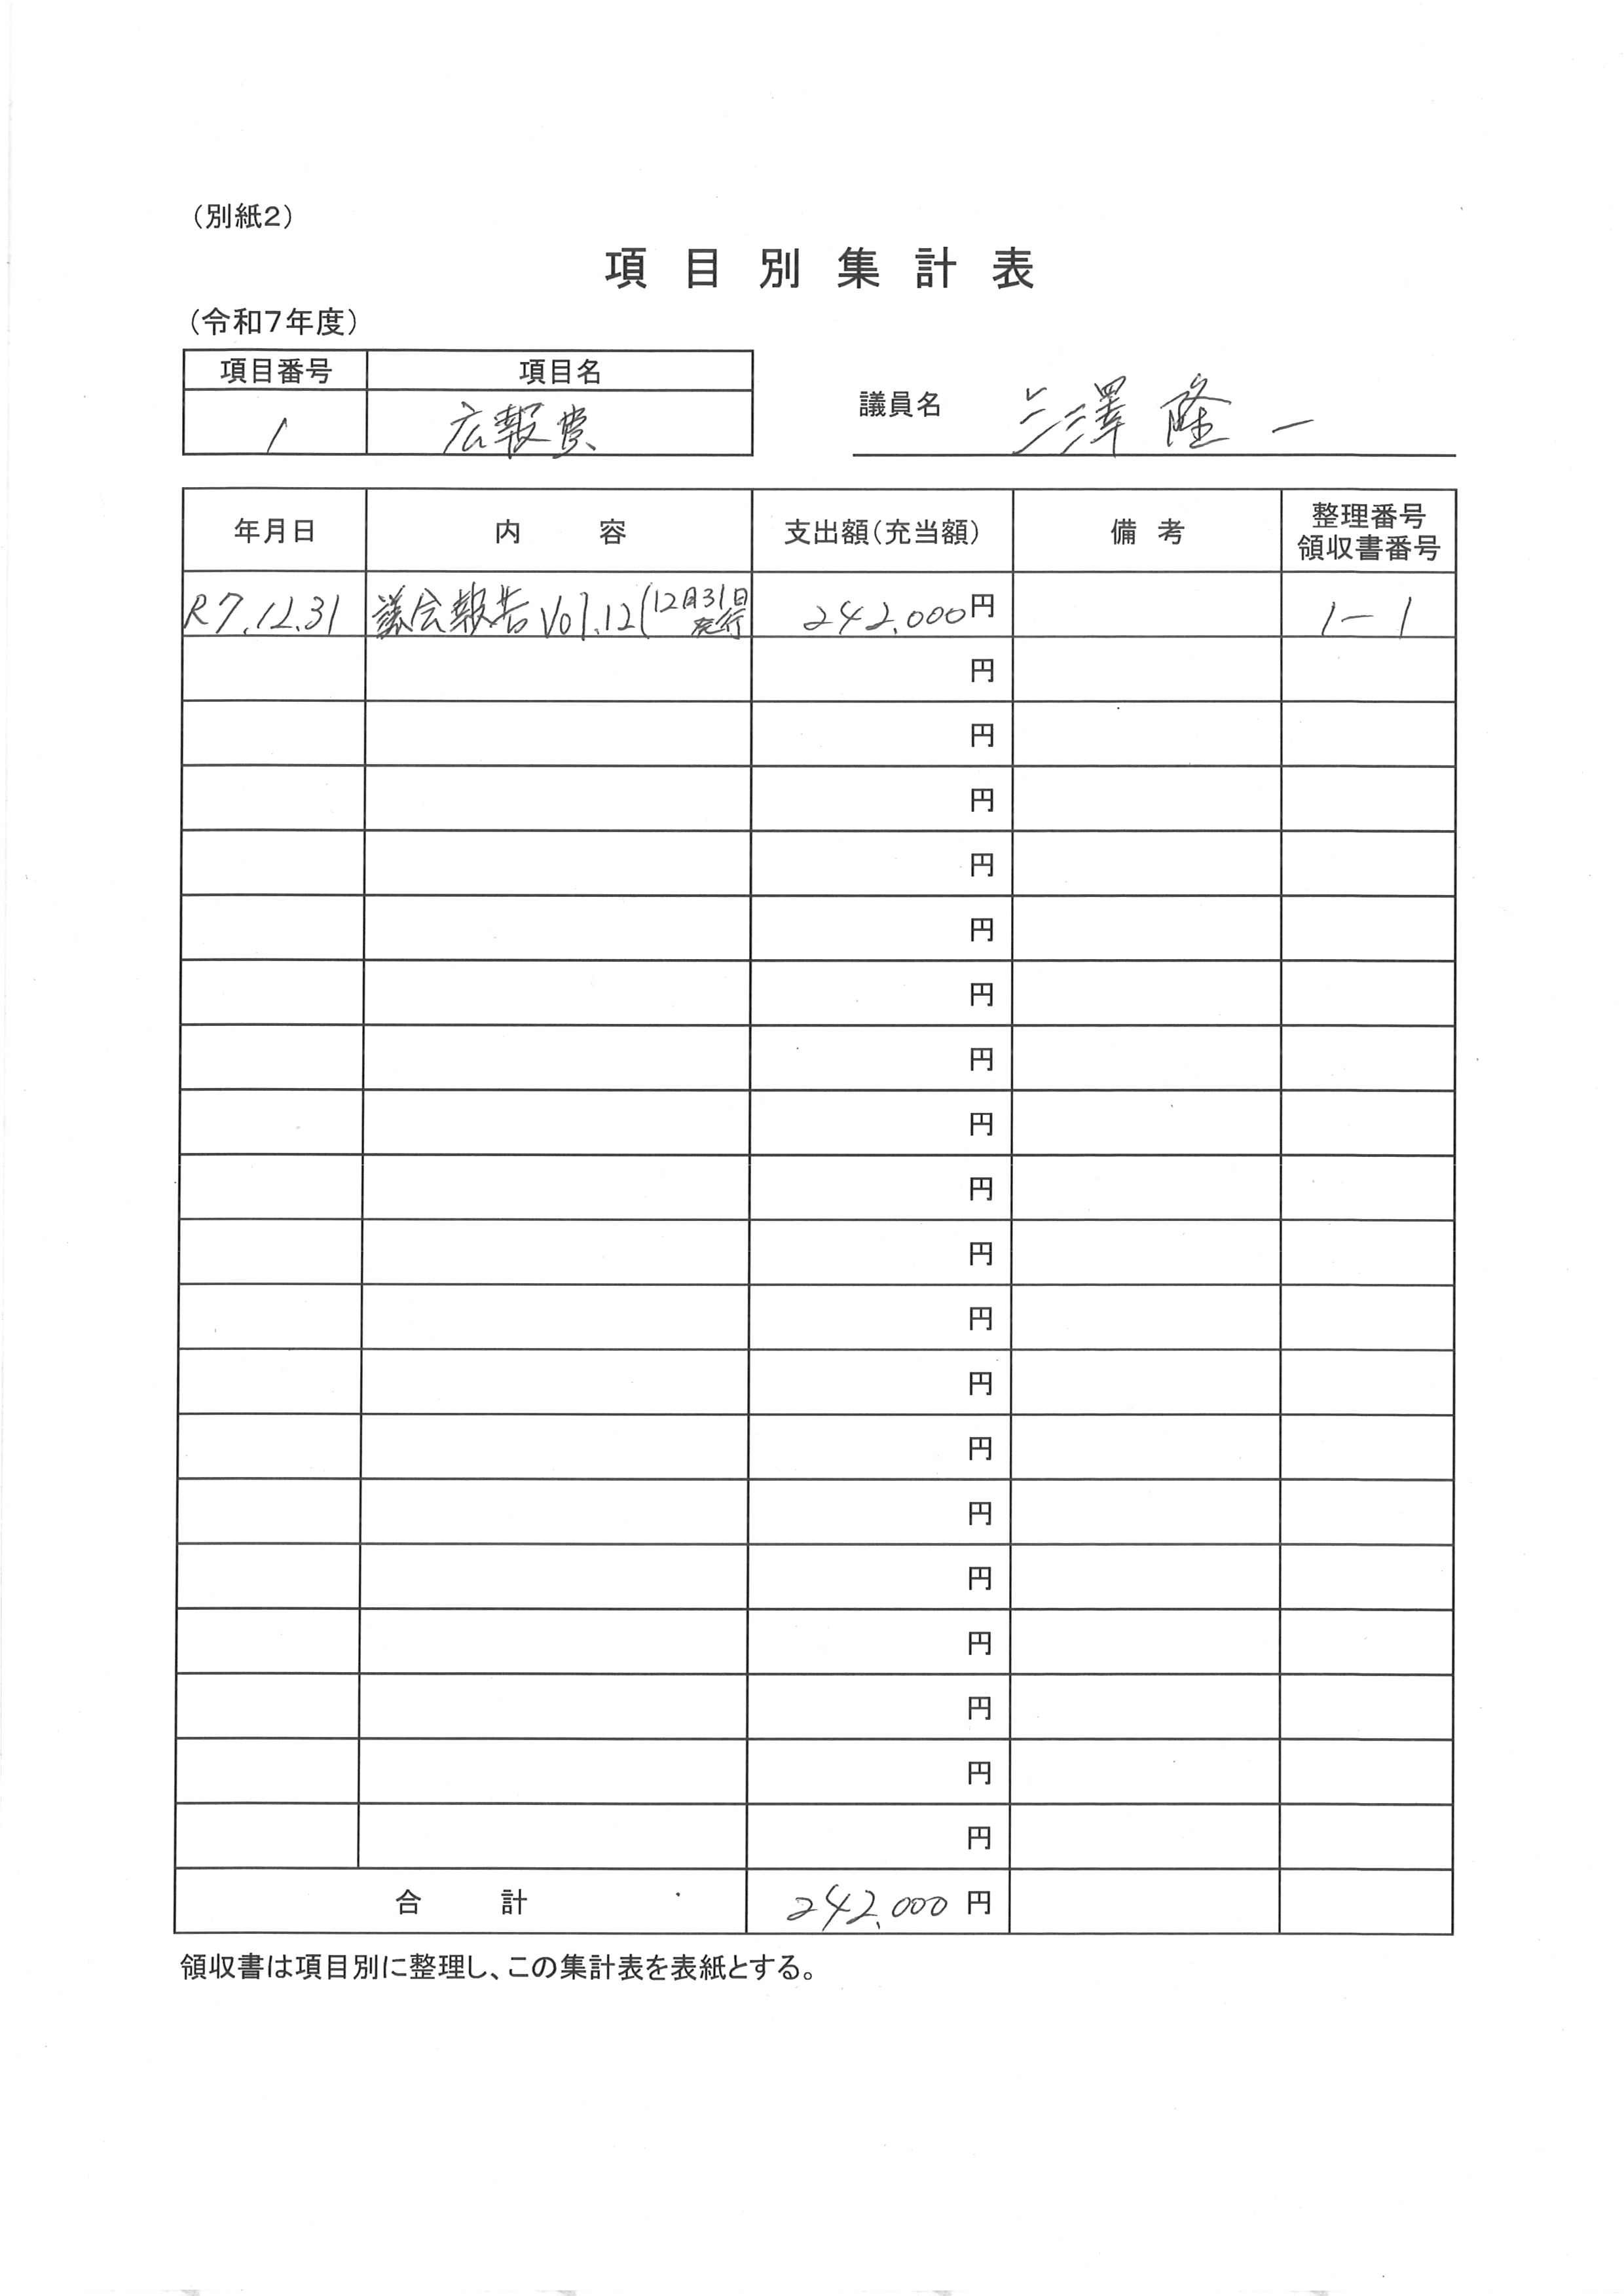 （別紙2）
項目別集計表
（令和7年度）
項目番号 項目名
1 広報費
議員名 三澤 隆一
年月日 内容 支出額（充当額） 備考 整理番号
領収書番号
R7.12.31 議会報告Vol.12(12月31日発行 242,000円 1-1
円
円
円
円
円
円
円
円
円
円
円
円
円
円
円
円
円
円
円
合計 242,000円
領収書は項目別に整理し、この集計表を表紙とする。